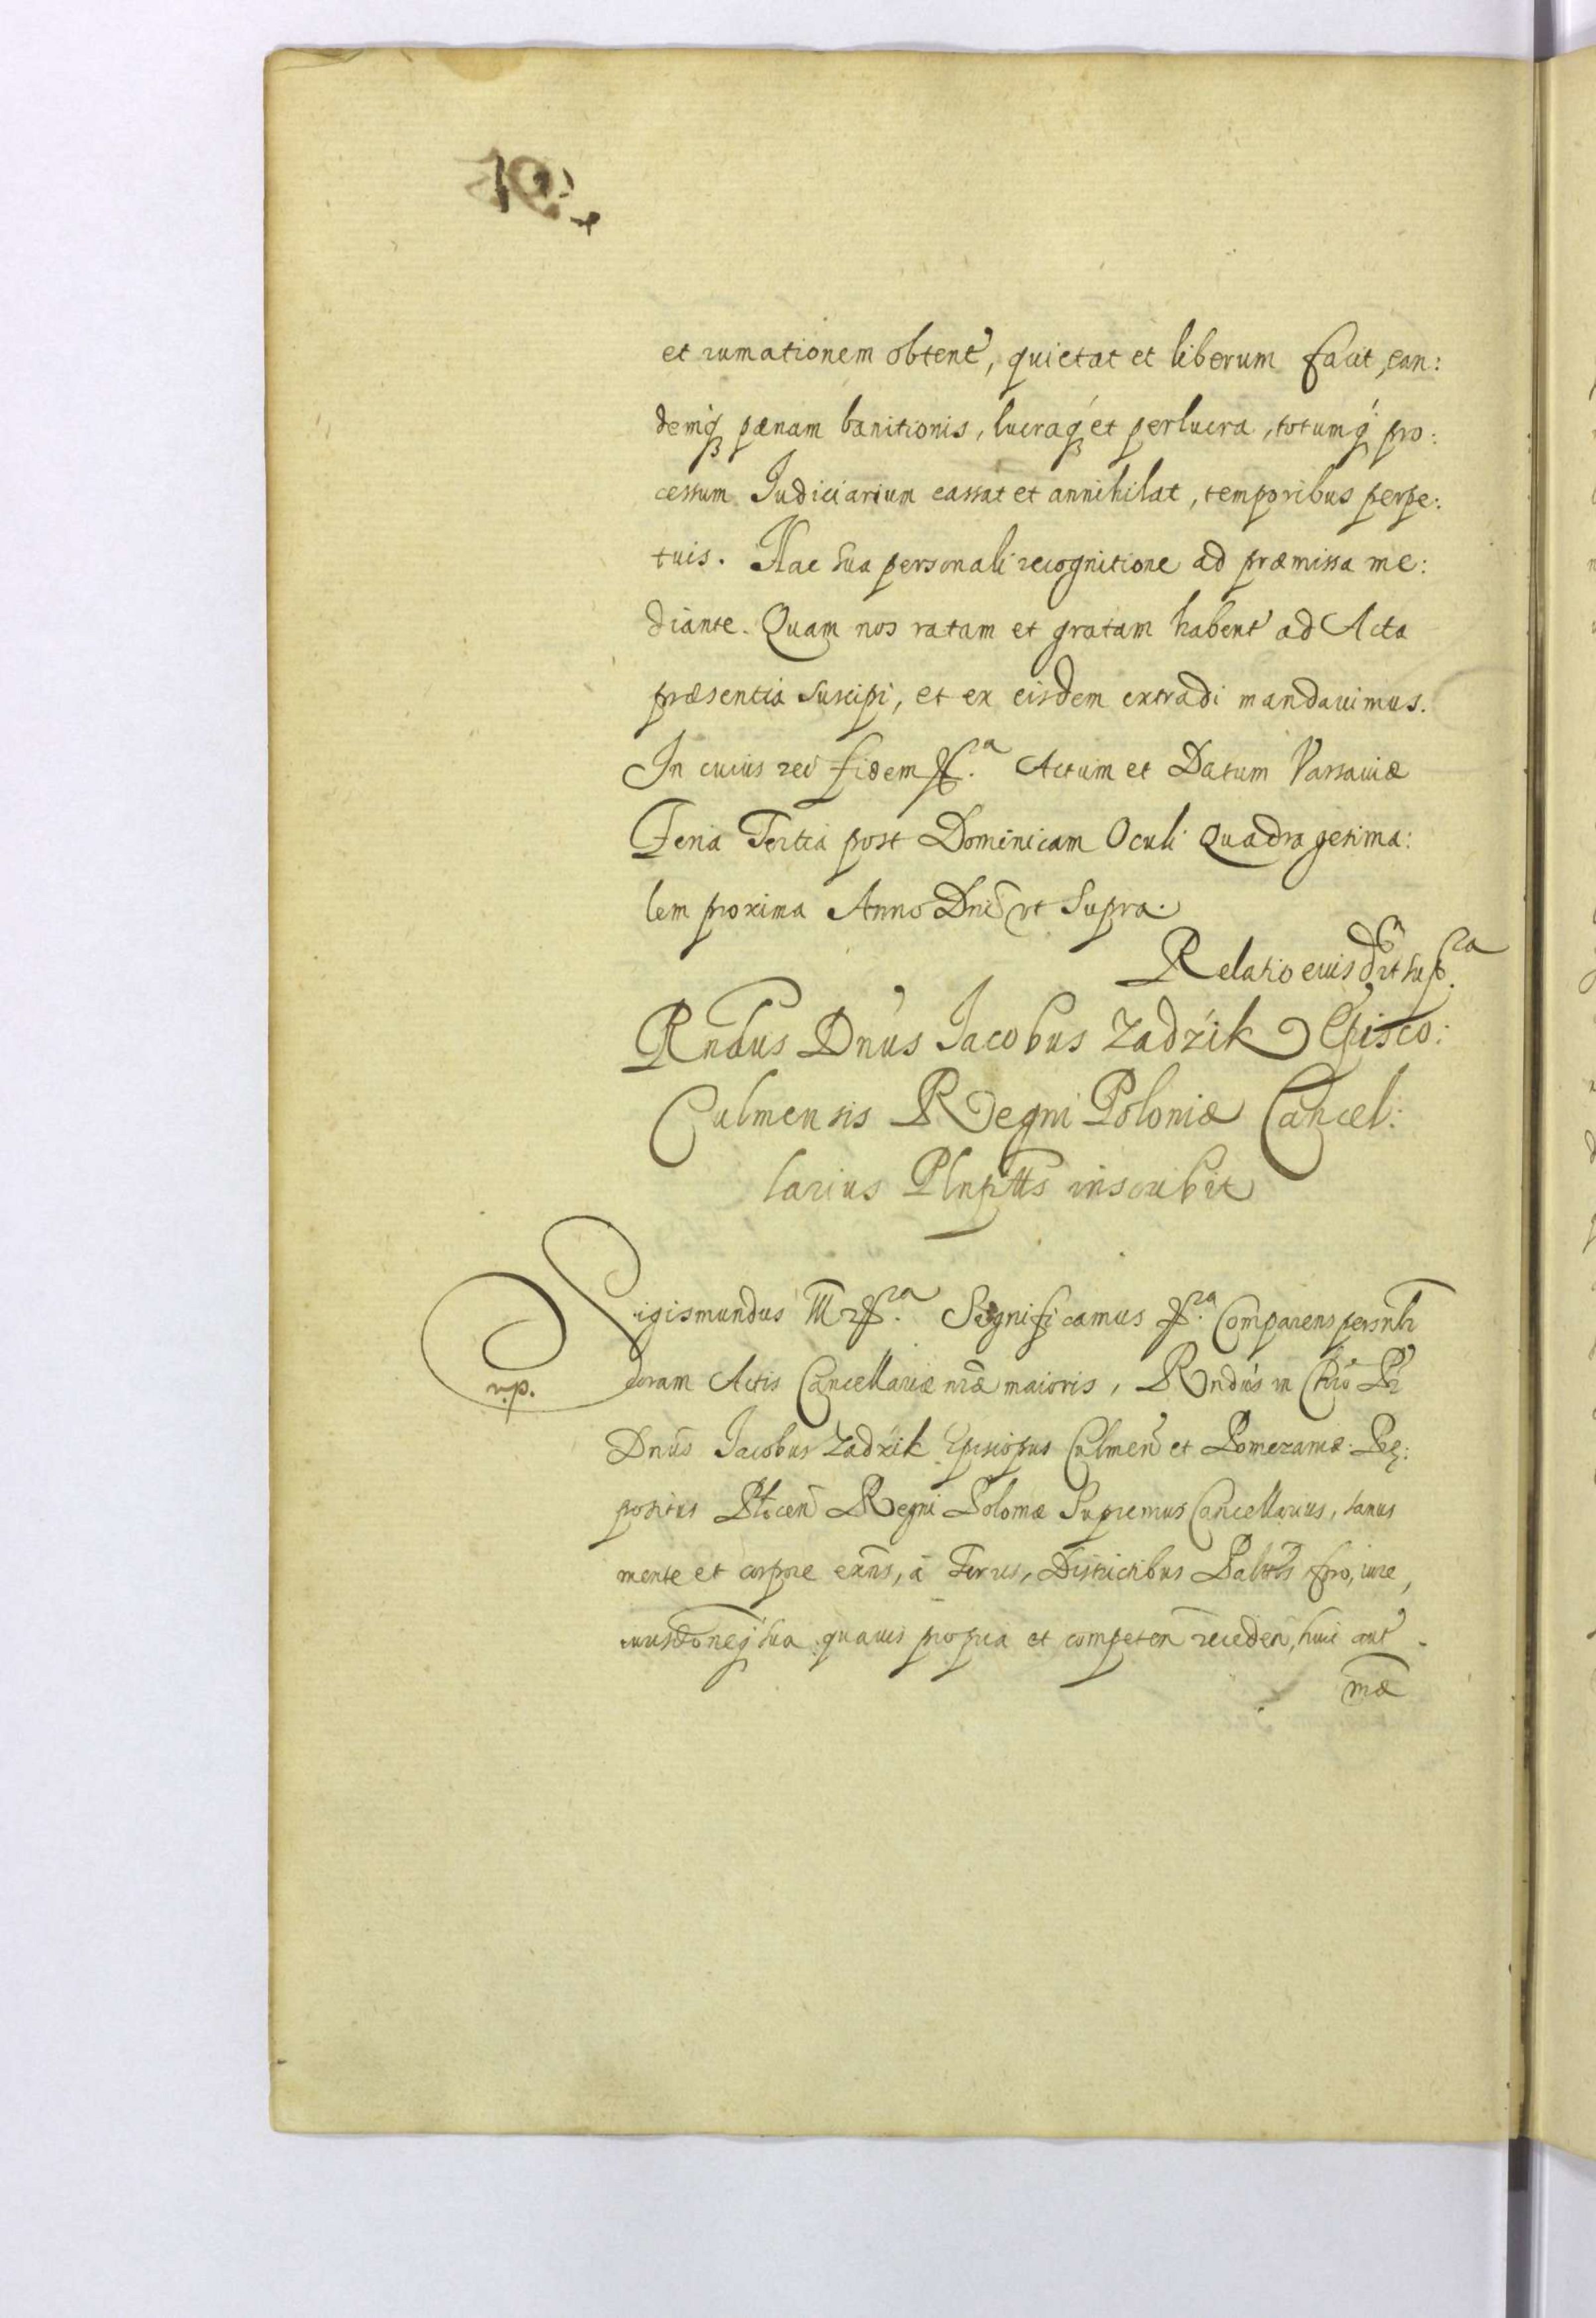 et rumationem obtent, quietat et liberum facit, ean:
demq pœnam banitionis, lucraq et perlucra, totumq pro:
cessum Judiciarium cassat et annihilat, temporibus perpe:
tuis. Hac sua personali recognitione ad præmissa me:
diante. Quam nos ratam et gratam habent ad Acta
præsentia suscipi, et ex eisdem extradi mandauimus.
In cuius rei fidem Actum et Datum Varsauiæ
Feria Tertia post Dominicam Oculi Quadragesima:
lem proxima Anno Dni vt Supra.
Relatio euisd vt sup.ra
Rndus Dnus Jacobus Zadzik Episco:
Culmensis Regni Poloniæ Cancel:
larius inscribit
Sigismundus III Significamus Comparens persnlr
coram Actis Cancellariæ nræ maioris, Rndus in Chro Pr
Dnus Jacobus Zadzik Episcopus Culmen et Pomezaniæ Præ:
positus Regni Poloniæ Supremus Cancellarius, sanus
mente et corpore exns, à Terris, Districtibus Paltbs fro, iure,
sua quauis propria et competen receden, huic aut
mæ